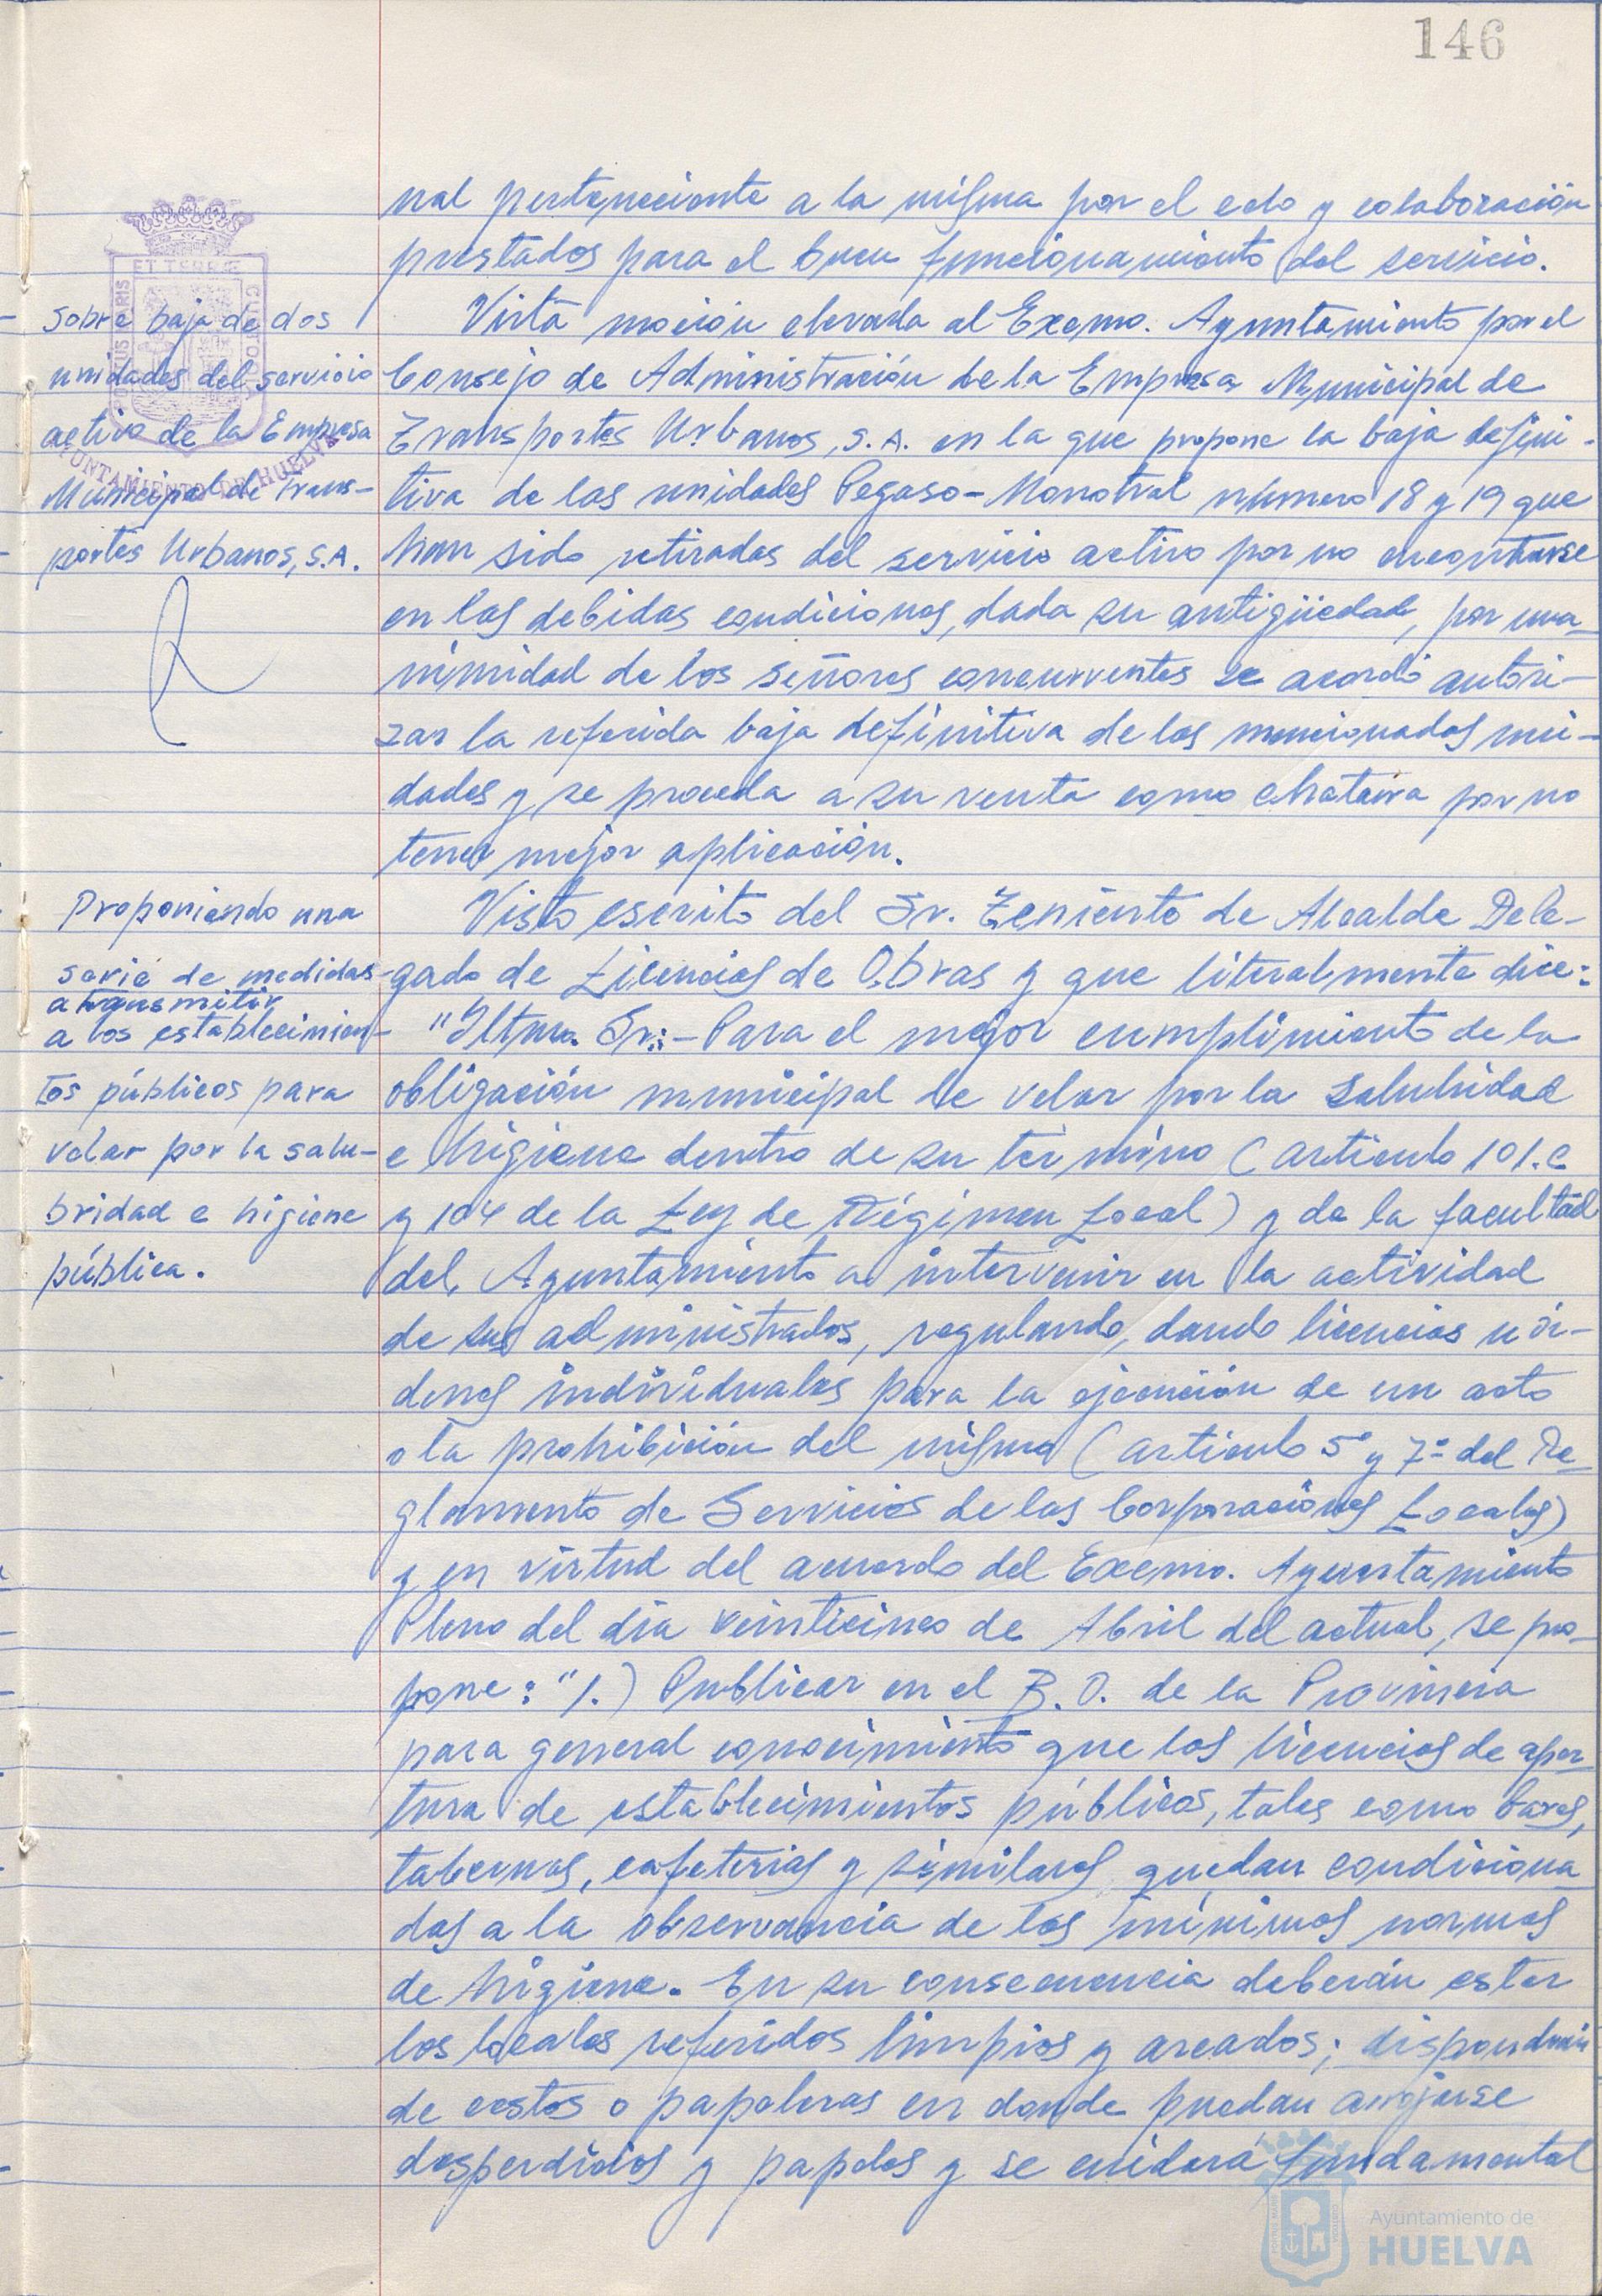 146
nal perteneciente a la misma por el celo y colaboración
prestados para el buen funcionamiento del servicio.
Sobre baja de dos
unidades del servicio
activo de la Empresa
Municipal de Trans-
portes Urbanos, S.A.
Vista moción elevada al Excmo. Ayuntamiento por el
Consejo de Administración de la Empresa Municipal de
Transportes Urbanos, S.A. en la que propone la baja defini-
tiva de las unidades Pegaso-Monotral número 18 y 19 que
han sido retiradas del servicio activo por no encontrarse
en las debidas condiciones, dada su antigüedad, por una-
nimidad de los señores concurrentes se acordó autori-
zar la referida baja definitiva de las mencionadas uni-
dades y se proceda a su venta como chatarra por no
tener mejor aplicación.
Proponiendo una
serie de medidas
a transmitir
a los establecimien-
tos públicos para
velar por la salu-
bridad e higiene
pública.
Visto escrito del Sr. Teniente de Alcalde Dele-
gado de Licencias de Obras y que literalmente dice:
"Iltmo. Sr.:- Para el mejor cumplimiento de la
obligación municipal de velar por la salubridad
e higiene dentro de su término (artículo 101.c
y 104 de la Ley de Régimen Local) y de la facultad
del Ayuntamiento a intervenir en la actividad
de sus administrados, regulando, dando licencias u ór-
denes individuales para la ejecución de un acto
o la prohibición del mismo (artículo 5º y 7º del Re-
glamento de Servicios de las Corporaciones Locales)
y en virtud del acuerdo del Excmo. Ayuntamiento
Pleno del día veinticinco de Abril del actual, se pro-
pone: "1.) Publicar en el B. O. de la Provincia
para general conocimiento que las licencias de aper-
tura de establecimientos públicos, tales como bares,
tabernas, cafeterias y similares quedan condiciona-
das a la observancia de las mínimas normas
de higiene. En su consecuencia deberán estar
los locales referidos limpios y areados; dispondrán
de cestos o papeleras en donde puedan arrojarse
desperdicios y papeles y se cuidará fundamental
ET TERRE
CUSTODIA
PORTUS MARIS
AYUNTAMIENTO DE HUELVA
Ayuntamiento de
HUELVA